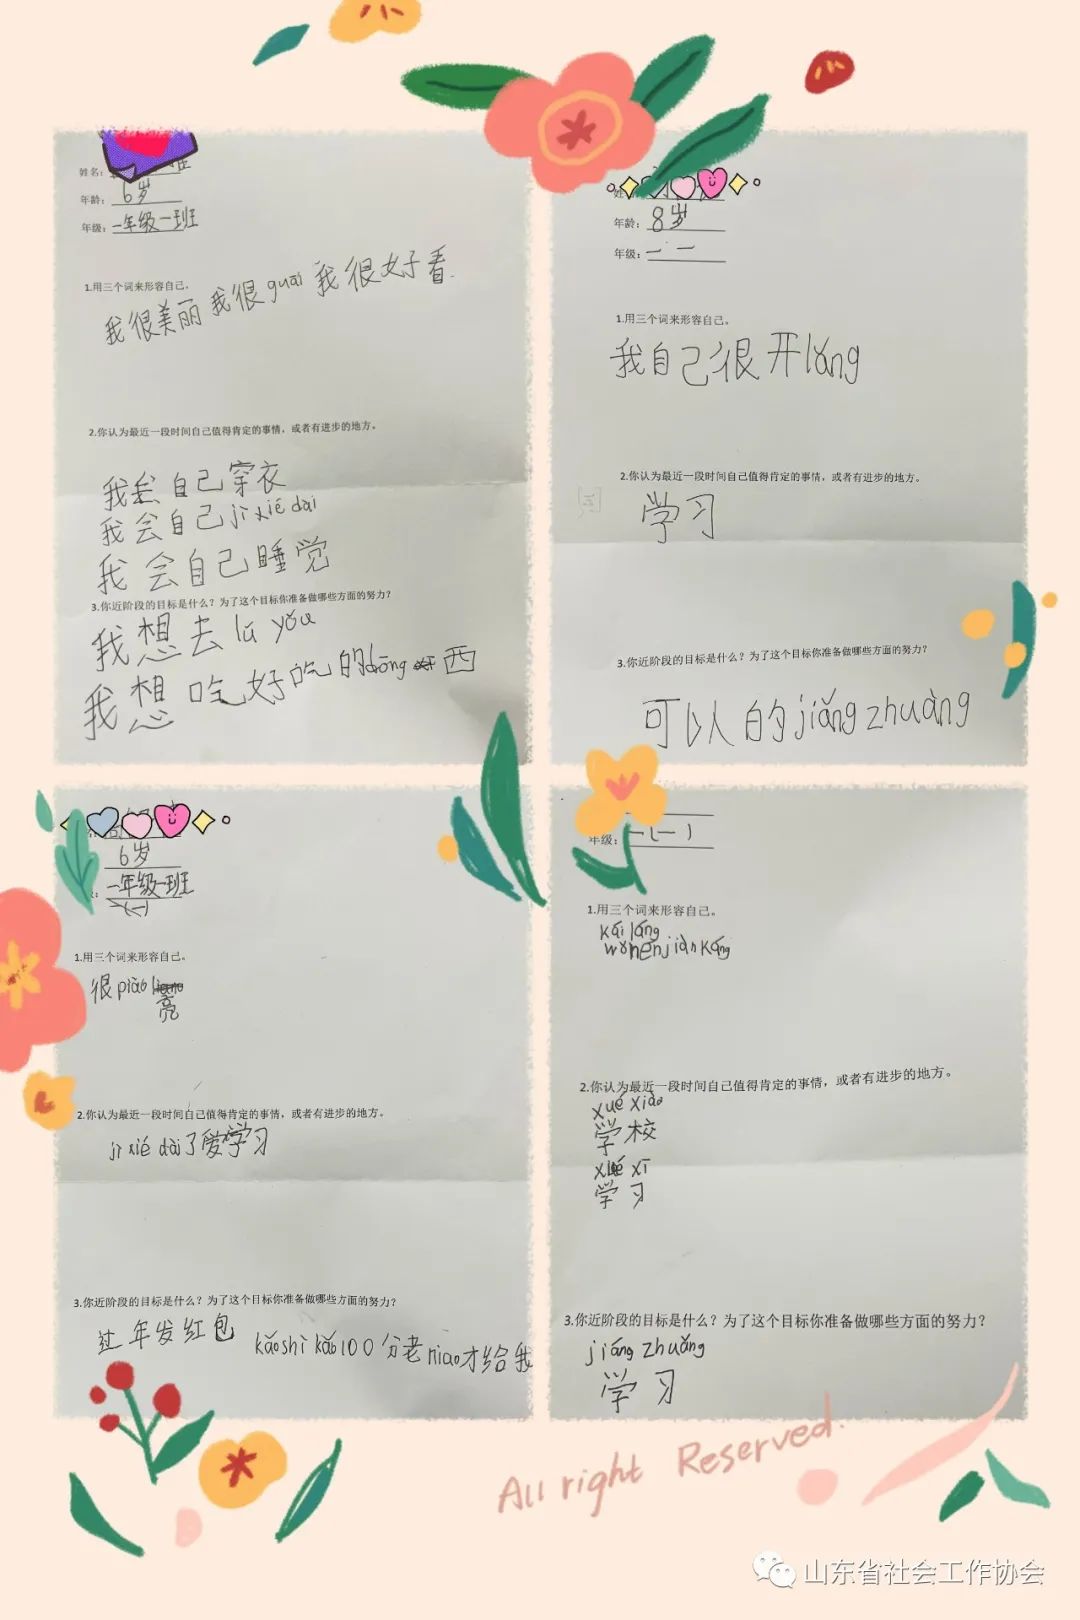 姓名：
年龄：6岁
年级：一年级一班
1.用三个词来形容自己.
我很美丽我很guāi我很好看.
2.你认为最近一段时间自己值得肯定的事情，或者有进步的地方。
我会自己穿衣
我会自己jì xié dài
我会自己睡觉
3.你近阶段的目标是什么？为了这个目标你准备做哪些方面的努力？
我想去lǘ yǒu
我想吃好吃的dōng西
年龄：8岁
年级：一 一
1.用三个词来形容自己。
我自己很开lǎng
2.你认为最近一段时间自己值得肯定的事情，或者有进步的地方。
学习
3.你近阶段的目标是什么？为了这个目标你准备做哪些方面的努力？
可以人的jiǎng zhuàng
6岁
一年级一班
(一)
1.用三个词来形容自己。
很piào
亮
2.你认为最近一段时间自己值得肯定的事情，或者有进步的地方。
jì xié dài了爱学习
3.你近阶段的目标是什么？为了这个目标你准备做哪些方面的努力？
过年发红包 kǎoshì kǎo100分老niao才给我
年级：一(一)
1.用三个词来形容自己。
kāi lǎng
wǒ men jiàn kāng
2.你认为最近一段时间自己值得肯定的事情，或者有进步的地方。
xué xiào
学校
xué xī
学习
3.你近阶段的目标是什么？为了这个目标你准备做哪些方面的努力？
jiǎng zhuǎng
学习
All right Reserved.
山东省社会工作协会